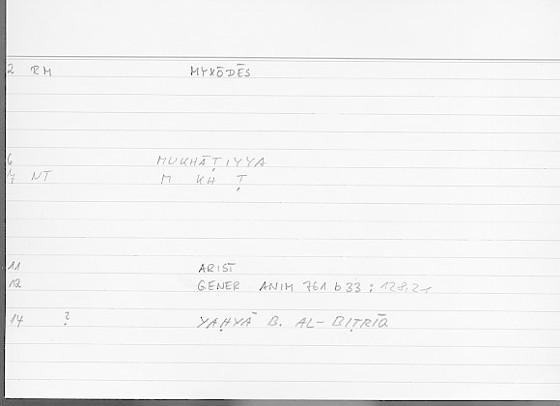 2 RM MYXŌDĒS
6 MUKHĀṬIYYA
NT M KH Ṭ
11 ARIST
12 GENER ANIM 761 b 33 : 128,21
14 ? YAḤYĀ B. AL-BIṬRĪQ